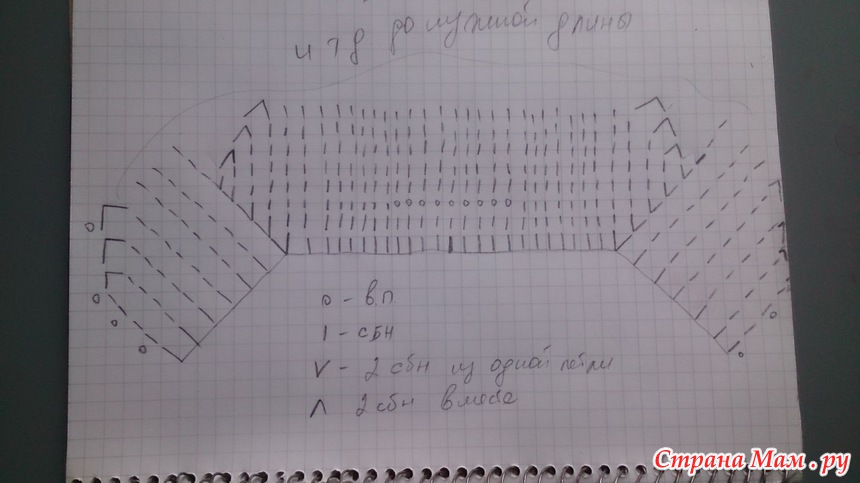 и т д до нужной длины
о - в.п
I - сбн
V - 2 сбн из одной петли
Λ 2 сбн вместе
Страна Мам.ру